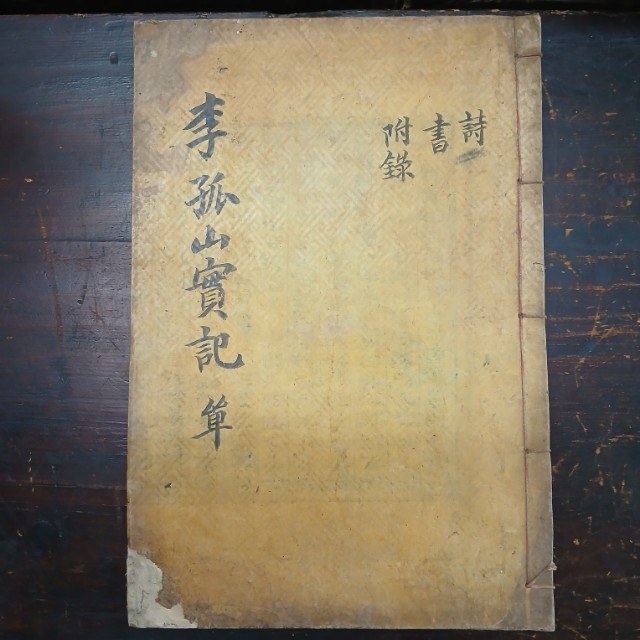 詩
書
附錄
李孤山實記 単